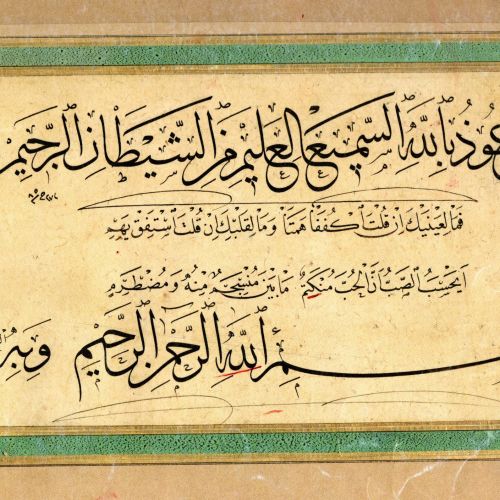 عوذ بالله السميع العليم من الشيطان الرجيم
فما لعينيك ان قلت اكففا همتا وما لقلبك ان قلت استفق يهم
ايحسب الصب ان الحب منكتم ما بين منسجم منه ومضطرم
سم الله الرحمن الرحيم